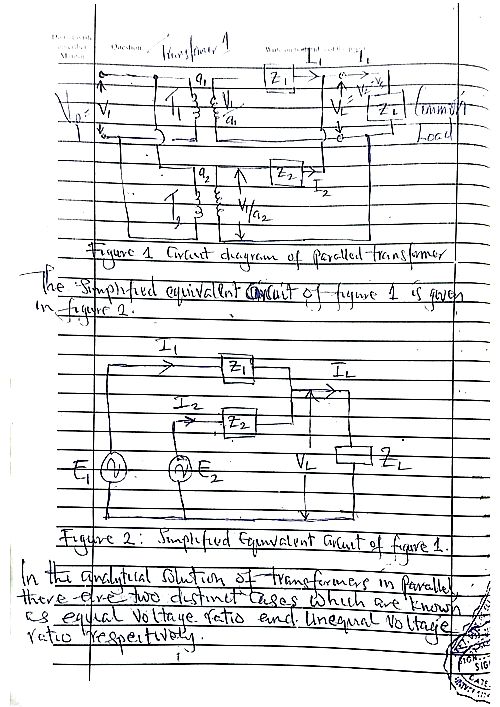 Question
Transformer 1
I₁
I₁
a₁
Z₁
V₁
T₁
V₁/a₁
Z_L
Common
Load
a₂
Z₂
I₂
T₂
V₁/a₂
Figure 1 Circuit diagram of paralled transformer
The Simplified equivalent Circuit of figure 1 is given
in figure 2.
I₁
Z₁
I_L
I₂
Z₂
E₁
E₂
V_L
Z_L
Figure 2: Simplified Equivalent Circuit of figure 1.
In the analytical solution of transformers in parallel,
there are two distinct cases which are known
as equal voltage ratio and Unequal Voltage
ratio respectively.